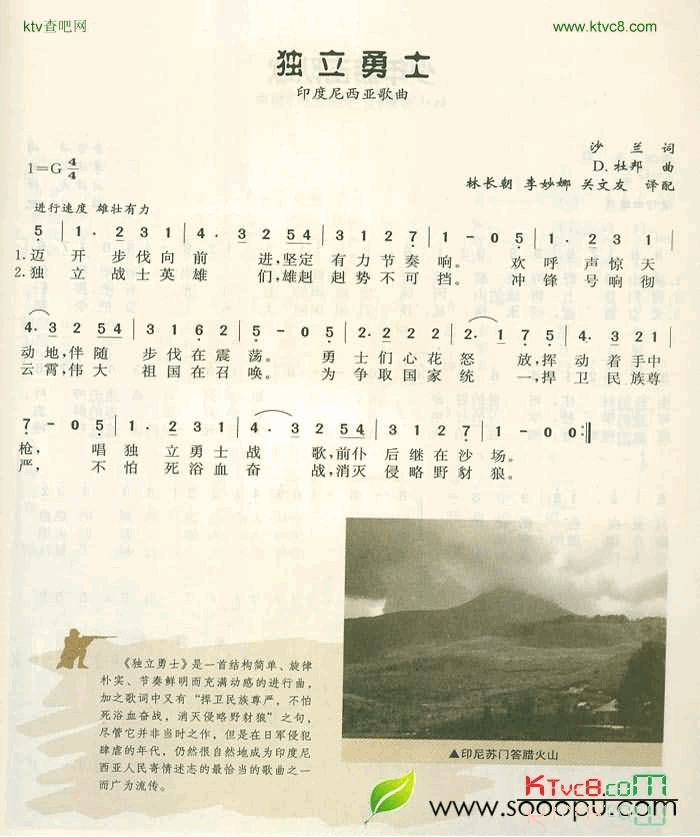 ktv查吧网
www.ktvc8.com
独立勇士
印度尼西亚歌曲
沙 兰 词
1=G 4/4
D. 杜邦 曲
林长朝 李妙娜 关文友 译配
进行速度 雄壮有力
5 | 1. 2 3 1 | 4. 3 2 5 4 | 3 1 2 7 | 1 - 0 5 | 1. 2 3 1 |
1.迈 开 步 伐 向 前 进,坚定 有 力 节 奏 响。 欢 呼 声 惊 天
2.独 立 战 士 英 雄 们,雄赳 赳 势 不 可 挡。 冲 锋 号 响 彻
4. 3 2 5 4 | 3 1 6 2 | 5 - 0 5 | 2. 2 2 2 | 2. 1 7 5 | 4. 3 2 1 |
动 地,伴 随 步 伐 在 震 荡。 勇 士 们 心 花 怒 放,挥 动 着 手 中
云 霄,伟 大 祖 国 在 召 唤。 为 争 取 国 家 统 一,捍 卫 民 族 尊
7 - 0 5 | 1. 2 3 1 | 4. 3 2 5 4 | 3 1 2 7 | 1 - 0 0 :||
枪, 唱 独 立 勇 士 战 歌,前仆 后 继 在 沙 场。
严, 不 怕 死 浴 血 奋 战,消灭 侵 略 野 豺 狼。
《独立勇士》是一首结构简单、旋律
朴实、节奏鲜明而充满动感的进行曲,
加之歌词中又有“捍卫民族尊严,不怕
死浴血奋战,消灭侵略野豺狼”之句,
尽管它并非当时之作,但是在日军侵犯
肆虐的年代,仍然很自然地成为印度尼
西亚人民寄情述志的最恰当的歌曲之一
而广为流传。
▲印尼苏门答腊火山
KTvc8.com
www.sooopu.com